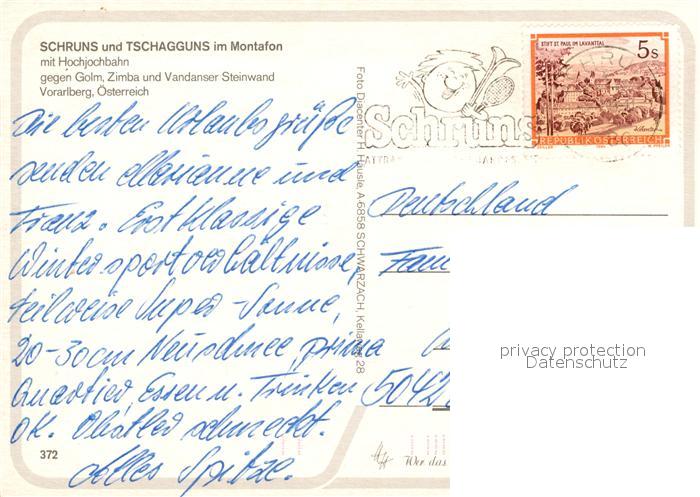 SCHRUNS und TSCHAGGUNS im Montafon
mit Hochjochbahn
gegen Golm, Zimba und Vandanser Steinwand
Vorarlberg, Österreich
Die besten Urlaubsgrüße
senden Marianne und
Franz. Erstklassige
Wintersportverhältnisse,
teilweise Super-Sonne,
20-30cm Neuschnee, prima
Quartier, Essen u. Trinken
OK. Obstler schmeckt.
Alles Spitze.
372
Foto Diacenter H. Häusle, A-6858 SCHWARZACH, Kellaweg 28
Schruns
STIFT ST. PAUL IM LAVANTTAL
5s
REPUBLIK ÖSTERREICH
Deutschland
Fam
5042
Wer das
privacy protection
Datenschutz